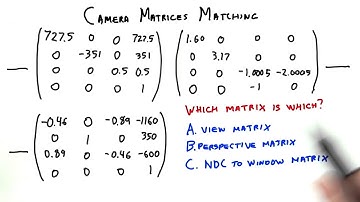 CAMERA MATRICES MATCHING
727.5 0 0 727.5
0 -351 0 351
0 0 0.5 0.5
0 0 0 1
1.60 0 0 0
0 3.17 0 0
0 0 -1.0005 -2.0005
0 0 -1 0
-0.46 0 -0.89 -1160
0 1 0 350
0.89 0 -0.46 -600
0 0 0 1
WHICH MATRIX IS WHICH?
A. VIEW MATRIX
B. PERSPECTIVE MATRIX
C. NDC TO WINDOW MATRIX